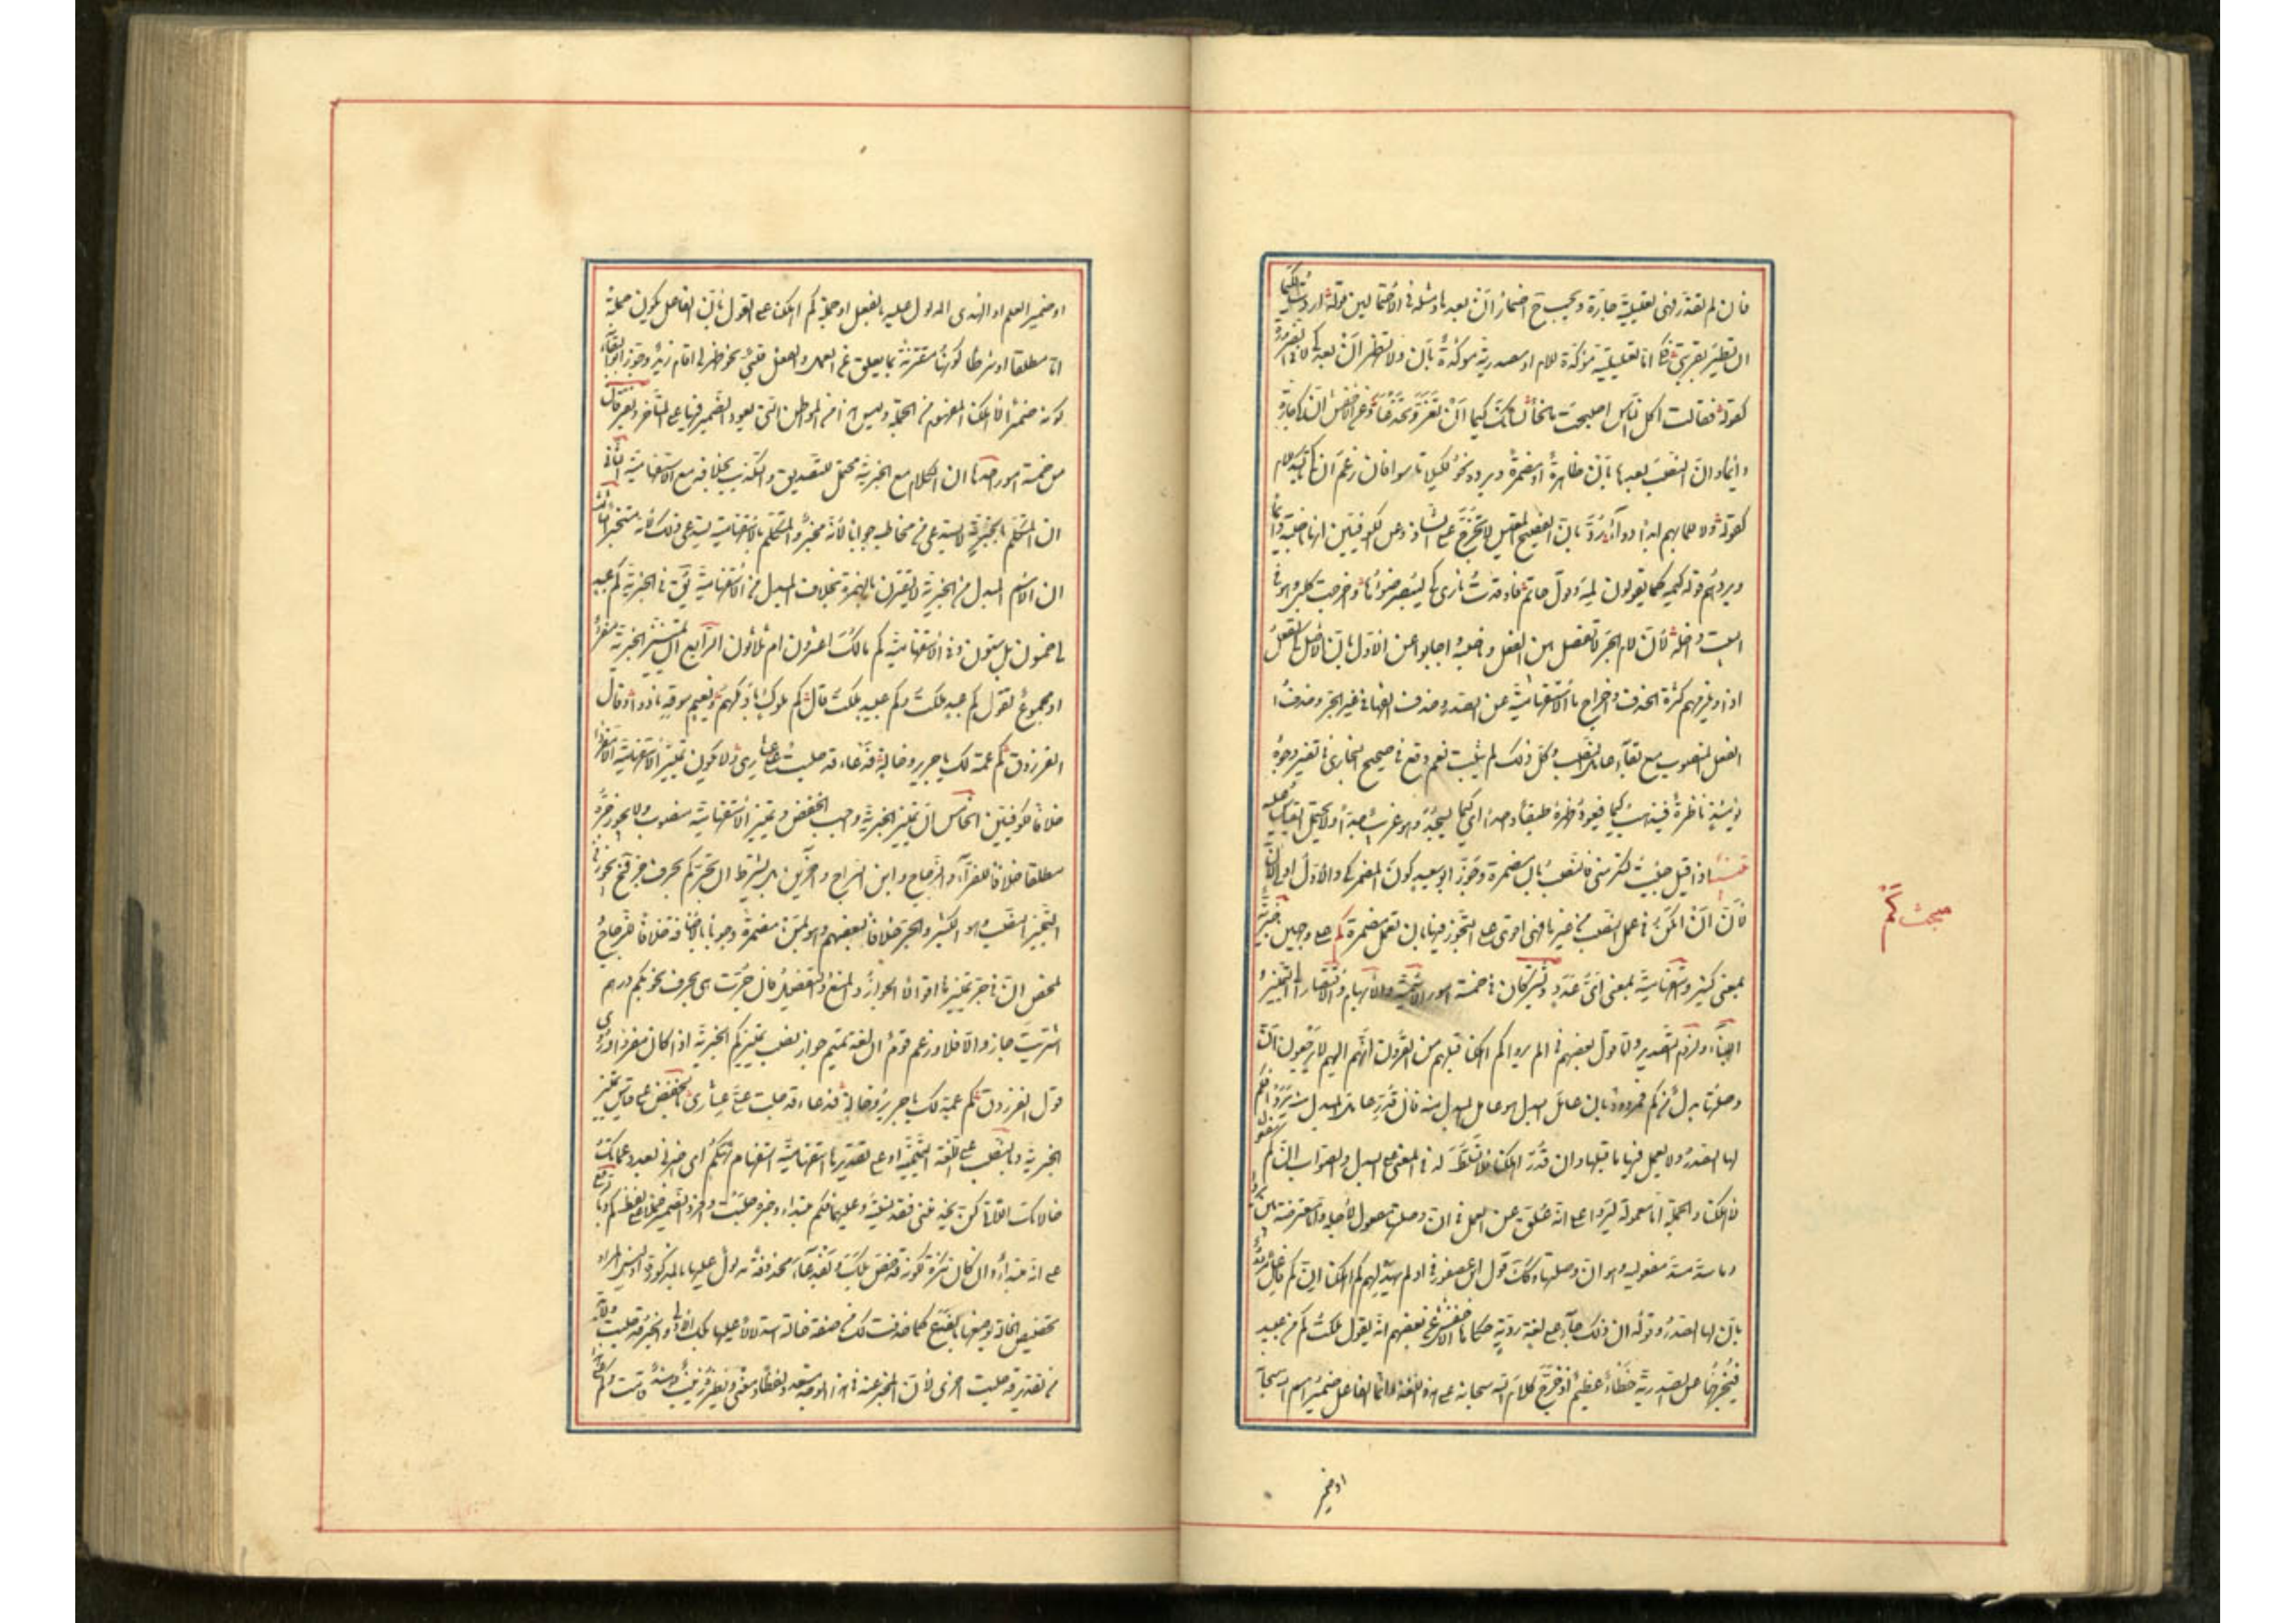 فان لم تقدر فهى تعليلية جارة ويجب ح اضمار ان بعدها ومثله فى الاحتمالين قوله اردت لكيما
ان تطير بقربتى فكى اما تعليلية مؤكدة للام او مصدرية مؤكدة بان ولا تظهر ان بعد كى الا فى الضرورة
كقوله فقالت اكل الناس اصبحت مانحا لسانك كيما ان تغر وتخدعا وعن الاخفش ان كى جارة
دائما وان النصب بعدها بان ظاهرة او مضمرة ويرده نحو لكيلا تاسوا فان زعم ان كى تاكيد للام
كقوله ولا للما بهم ابدا دواء رد بان الفصيح المقيس لا يخرج على الشاذ وعن الكوفيين انها ناصبة دائما
ويردهم قوله كيمه كما يقولون لمه وقول حاتم فاوقدت نارى كى ليبصر ضوءها واخرجت كلبى وهو فى
البيت داخله لان لام الجر لا تفصل بين الفعل وناصبه واجابوا عن الاول بان الاصل كى تفعل
ماذا ويلزمهم كثرة الحذف واخراج ما الاستفهامية عن الصدر وحذف الفها فى غير الجر وحذف
الفعل المنصوب مع بقاء عامل النصب وكل ذلك لم يثبت نعم وقع فى صحيح البخارى فى تفسير وجوه
يومئذ ناظرة فيذهب كيما فيعود ظهره طبقا واحدا اى كيما يسجد وهو غريب جدا لا يحتمل القياس عليه
تنبيه اذا قيل جئت لتكرمنى فالنصب بان مضمرة وجوز ابو سعيد كون المضمر كى والاول اولى لان
ان امكن فى عمل النصب من غيرها فهى اقوى على التجوز فيها بان تعمل مضمرة كم على وجهين خبرية
بمعنى كثير واستفهامية بمعنى اى عدد ويشتركان فى خمسة امور الاسمية والابهام والافتقار الى التمييز
والبناء ولزوم التصدير واما قول بعضهم فى الم يروا كم اهلكنا قبلهم من القرون انهم اليهم لا يرجعون ان
وصلتها بدل من كم فمردود بان عامل البدل هو عامل المبدل منه فان قدر عامل المبدل منه يروا فكم
لها الصدر ولا يعمل فيها ما قبلها وان قدر اهلكنا فلا تسلط له فى المعنى على البدل والصواب ان كم مفعول
لاهلكنا والجملة اما معمولة ليروا على انه علق عن العمل فى اللفظ وان وصلتها مفعول لاجله واما معترضة بين يروا
وما سد مسد مفعوليه وهو ان وصلتها وكذلك قول ابن عصفور فى او لم يهد لهم كم اهلكنا ان كم فاعل مردود
بان لها الصدر وقوله ان ذلك جاء على لغة ردية حكاها الاخفش عن بعضهم انه يقول ملكت كم عبيد
فيخرجها عن الصدرية خطاء عظيم اذ خرج كلام الله سبحانه على هذه اللغة وانما الفاعل ضمير اسم الله سبحانه
او ضمير
مبحث كم
او ضمير العلم او الهدى المدلول عليه بالفعل او جملة كم اهلكنا على القول بان الفاعل يكون جملة
اما مطلقا او بشرط كونها مقترنة بما يعلق عن العمل والفعل قلبى نحو ظهر لى اقام زيد وجوز ابو البقاء
كونه ضمير الاهلاك المفهوم من الجملة وليس هذا من المواطن التى يعود الضمير فيها على المتاخر ويفترقان
من خمسة امور احدها ان الكلام مع الخبرية محتمل للتصديق والتكذيب بخلافه مع الاستفهامية الثانى
ان المتكلم بالخبرية لا يستدعى من مخاطبه جوابا لانه مخبر والمتكلم بالاستفهامية يستدعى ذلك لانه مستخبر الثالث
ان الاسم المبدل من الخبرية لا يقترن بالهمزة بخلاف المبدل من الاستفهامية يق فى الخبرية كم عبيد
لى خمسون بل ستون وفى الاستفهامية كم مالك اعشرون ام ثلاثون الرابع ان تمييز الخبرية مفرد
او مجموع تقول كم عبد ملكت وكم عبيد ملكت قال كم ملوك باد ملكهم ونعيم سوقة بادوا وقال
الفرزدق كم عمة لك يا جرير وخالة فدعاء قد حلبت على عشارى ولا يكون تمييز الاستفهامية الا مفردا
خلافا للكوفيين الخامس ان تمييز الخبرية واجب الخفض وتمييز الاستفهامية منصوب ولا يجوز جره
مطلقا خلافا للفراء والزجاج وابن السراج وآخرين بل يشترط ان تجر كم بحرف جر فح يجوز فى
التمييز النصب وهو الكثير والجر خلافا لبعضهم وهو بمن مضمرة وجوبا لا بالاضافة خلافا للزجاج
فملخص ان فى جر تمييزها اقوالا الجواز والمنع والتفصيل فان جرت هى بحرف نحو بكم درهم
اشتريت جاز والا فلا وزعم قوم ان لغة تميم جواز نصب تمييز كم الخبرية اذا كان مفردا وروى
قول الفرزدق كم عمة لك يا جرير وخالة فدعاء قد حلبت على عشارى بالخفض على قياس تمييز
الخبرية وبالنصب على اللغة التميمية او على تقديرها استفهامية استفهام تهكم اى اخبرنى بعدد عماتك
وخالاتك اللاتى كن يخدمننى فقد نسيته وعليهما فكم مبتداء وخبره حلبت وافرد الضمير حملا على لفظ كم وبالرفع
على انه مبتداء وان كان نكرة لكونه قد وصف بلك وبفدعاء محذوفة مدلول عليها بالمذكورة اذ ليس المراد
تخصيص الخالة بوصفها بالفدع كما حذفت لك من صفة خالة استدلالا عليها بلك الاولى والخبر قد حلبت ولا بد
من تقدير قد حلبت اخرى لان المخبر عنه فى هذا الوجه متعدد لفظا ومعنى ونظيره زينب وهند قامت وكم على هذا